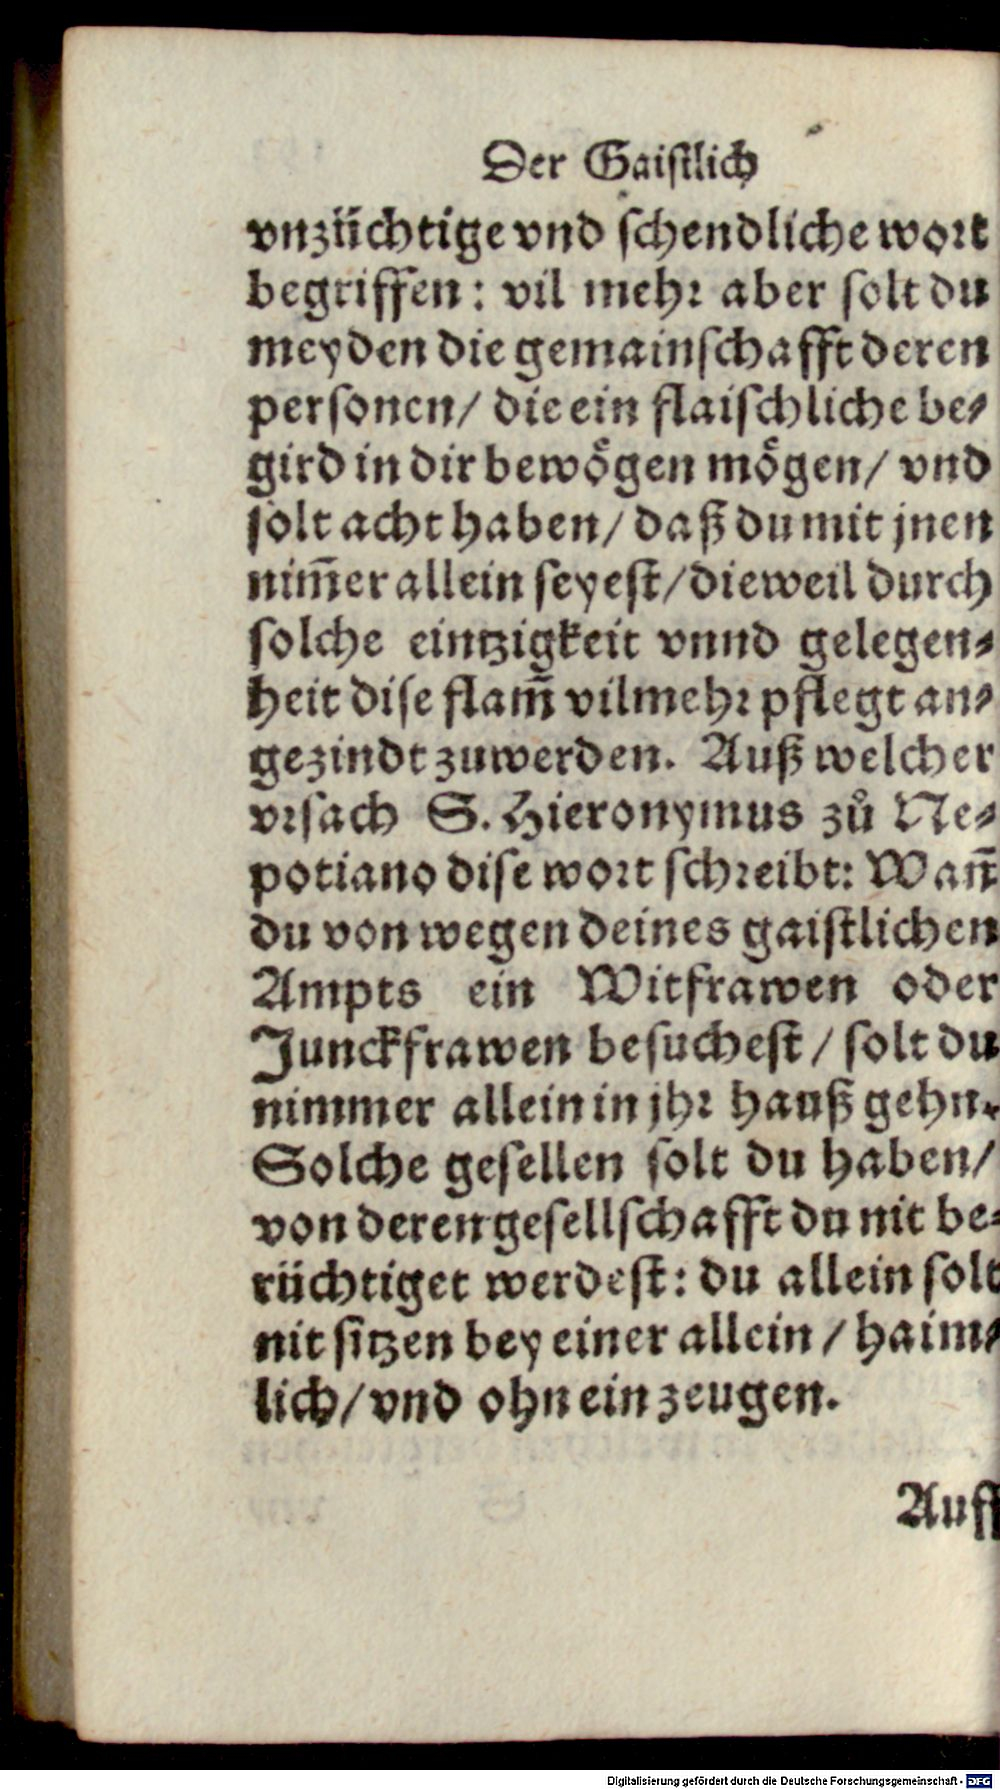 Der Gaistlich
vnzüchtige vnd schendliche wort
begriffen: vil mehr aber solt du
meyden die gemainschafft deren
personen/ die ein flaischliche be⸗
gird in dir bewoͤgen moͤgen/ vnd
solt acht haben/ daß du mit jnen
nim̄er allein seyest/ dieweil durch
solche eintzigkeit vnnd gelegen⸗
heit dise flam̄ vilmehr pflegt an⸗
gezindt zuwerden. Auß welcher
vrsach S. Hieronymus zů Ne⸗
potiano dise wort schreibt: Wañ
du von wegen deines gaistlichen
Ampts ein Witfrawen oder
Junckfrawen besuchest/ solt du
nimmer allein in jhr hauß gehn.
Solche gesellen solt du haben/
von deren gesellschafft du nit be⸗
rüchtiget werdest: du allein solt
nit sitzen bey einer allein/ haim⸗
lich/ vnd ohn ein zeugen.
Auff
Digitalisierung gefördert durch die Deutsche Forschungsgemeinschaft - DFG